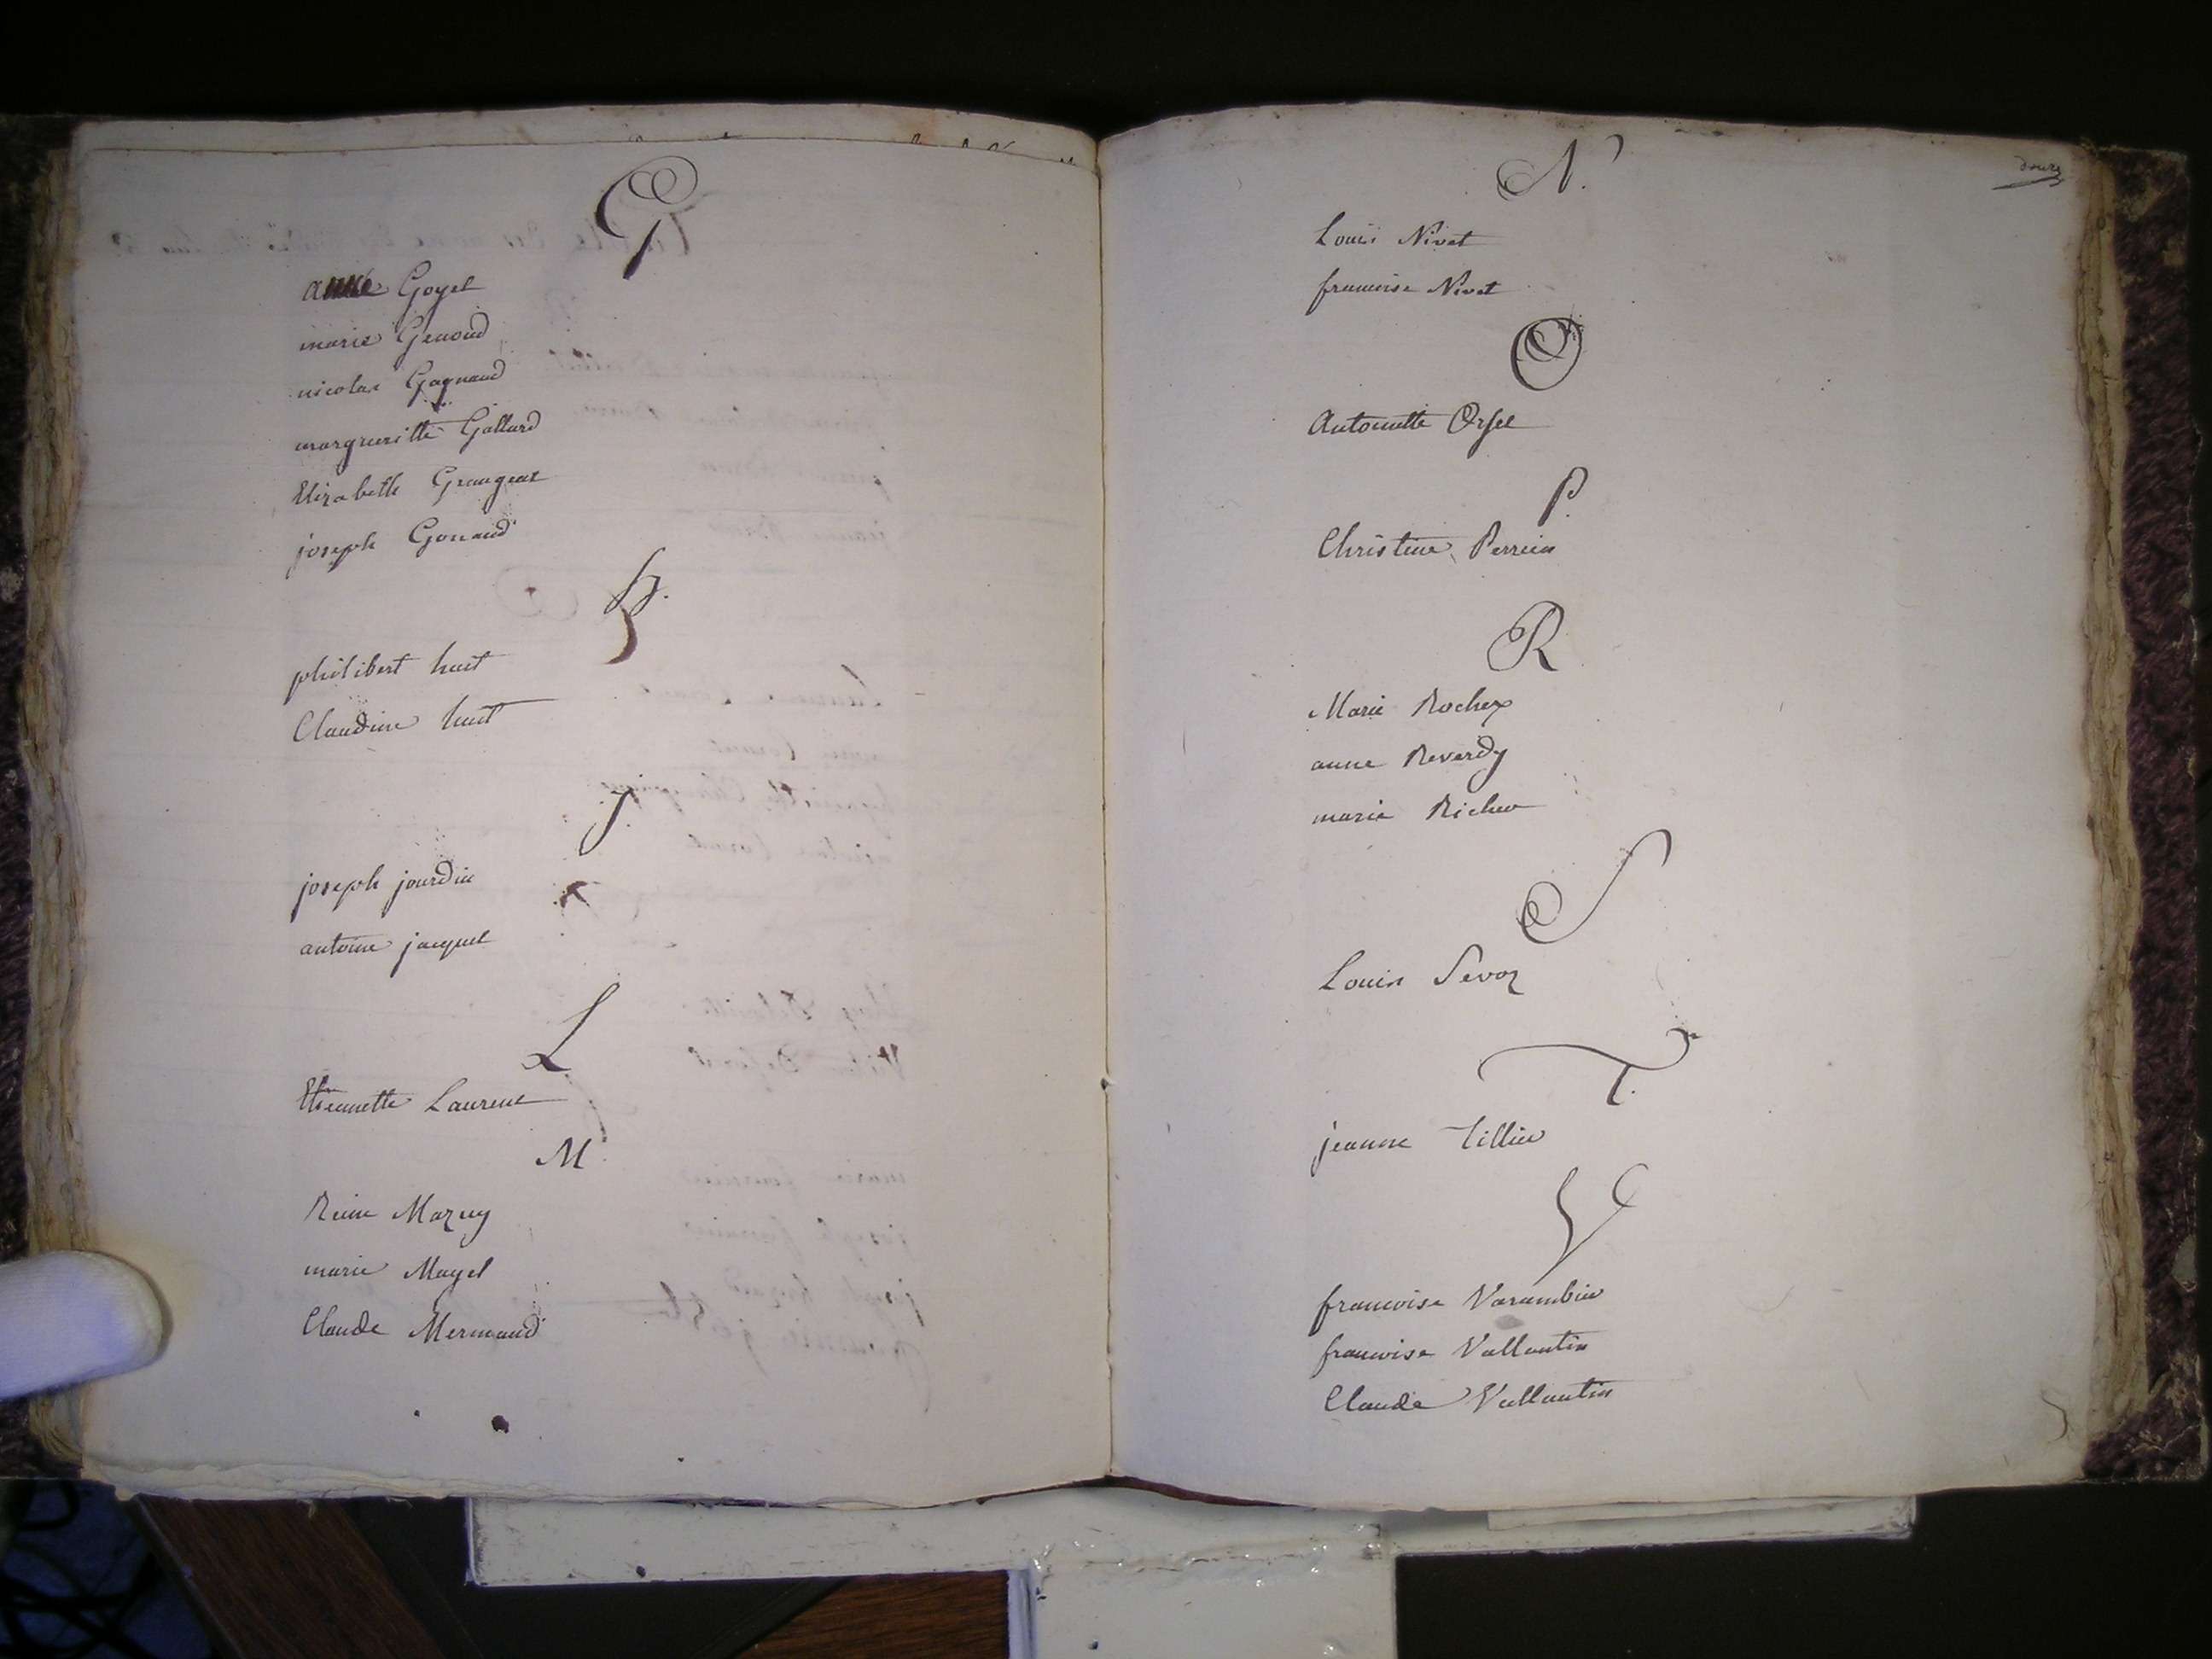 G
anne Goyet
marie Genoud
nicolas Gagnaud
margueritte Gallard
Elizabeth Grangeat
joseph Gonaud
h.
philibert huit
Claudine huit
J.
joseph jourdin
antoine jacquet
L
Etiennette Laurent
M
Reine Mazuy
marie Mayet
Claude Mermand
N.
douze
Louis Nivet
francoise Nivet
O
Antoinette Orset
P.
Christine Perrein
R
Marie Rochex
anne Reverdy
marie Richer
S
Louis Sevoz
T.
jeanne tillier
V
francoise Varambier
francoise Vallantin
Claude Vallantin